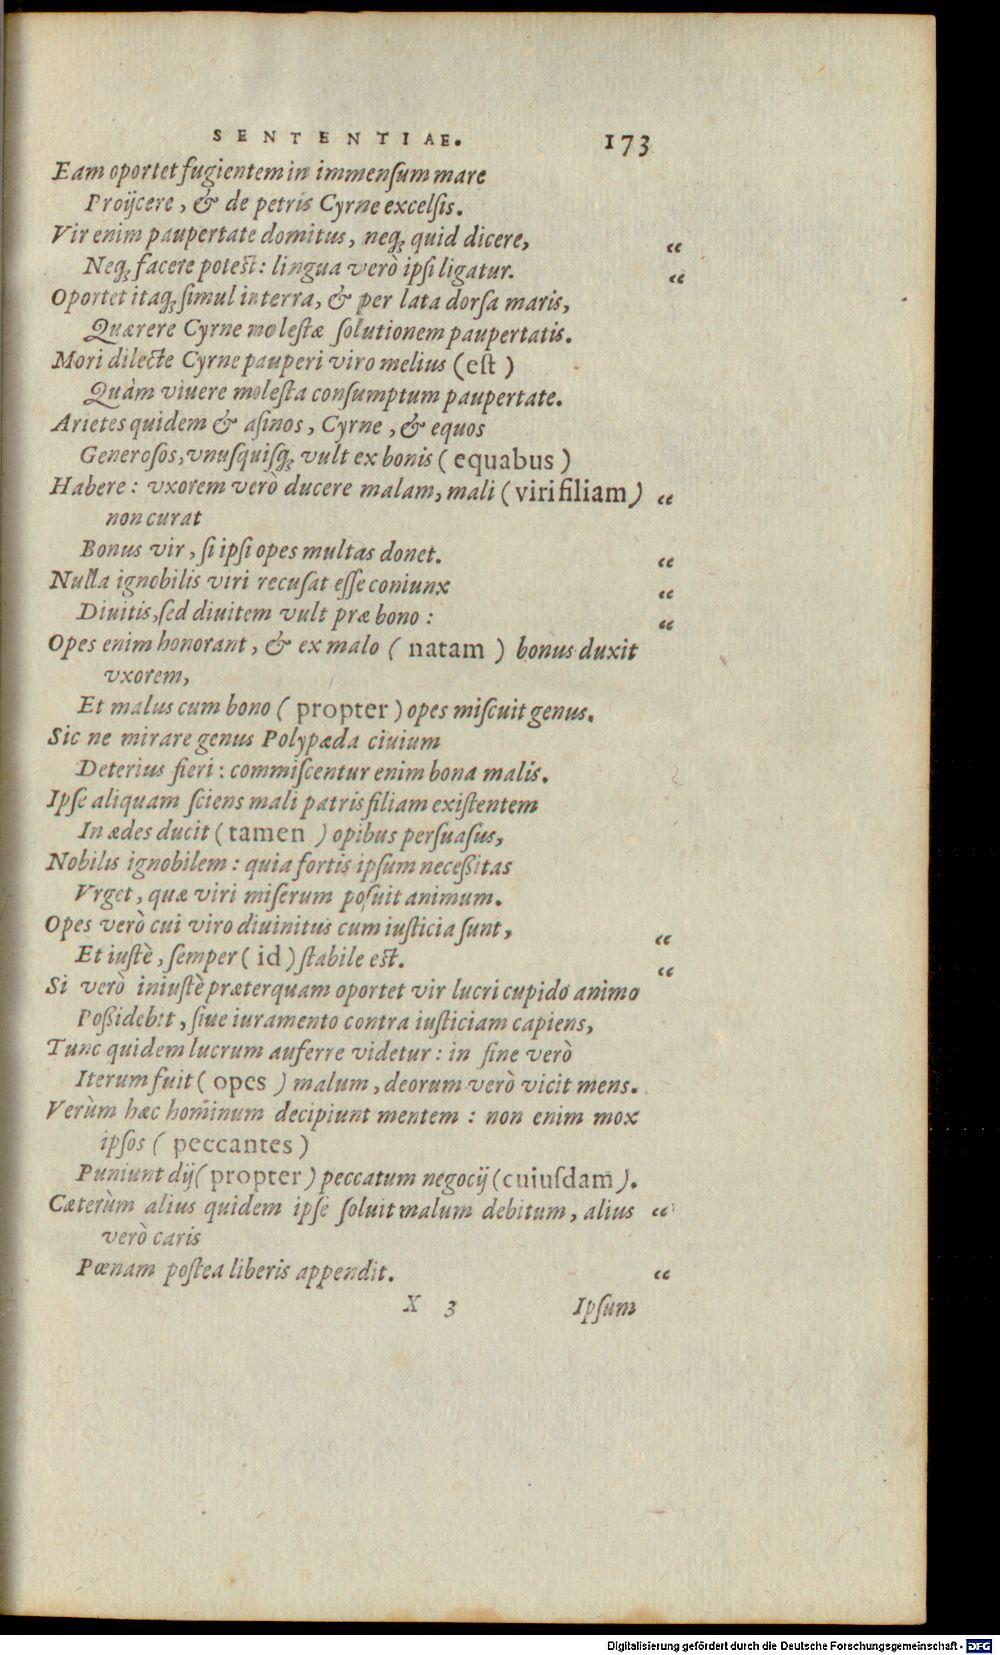 SENTENTIAE. 173
Eam oportet fugientem in immensum mare
Proijcere, & de petris Cyrne excelsis.
Vir enim paupertate domitus, neq; quid dicere, “
Neq; facere potest: lingua verò ipsi ligatur. “
Oportet itaq; simul in terra, & per lata dorsa maris,
Quærere Cyrne molestæ solutionem paupertatis.
Mori dilecte Cyrne pauperi viro melius (est)
Quàm viuere molesta consumptum paupertate.
Arietes quidem & asinos, Cyrne, & equos
Generosos, vnusquisq; vult ex bonis (equabus)
Habere: vxorem verò ducere malam, mali (viri filiam) “
non curat
Bonus vir, si ipsi opes multas donet. “
Nulla ignobilis viri recusat esse coniunx “
Diuitis, sed diuitem vult præ bono: “
Opes enim honorant, & ex malo (natam) bonus duxit
vxorem,
Et malus cum bono (propter) opes miscuit genus.
Sic ne mirare genus Polypæda ciuium
Deterius fieri: commiscentur enim bona malis.
Ipse aliquam sciens mali patris filiam existentem
In ædes ducit (tamen) opibus persuasus,
Nobilis ignobilem: quia fortis ipsum neceßitas
Vrget, quæ viri miserum posuit animum.
Opes verò cui viro diuinitus cum iusticia sunt, “
Et iustè, semper (id) stabile est. “
Si verò iniustè præterquam oportet vir lucri cupido animo
Poßidebit, siue iuramento contra iusticiam capiens,
Tunc quidem lucrum auferre videtur: in fine verò
Iterum fuit (opes) malum, deorum verò vicit mens.
Verùm hæc hominum decipiunt mentem: non enim mox
ipsos (peccantes)
Puniunt dij (propter) peccatum negocij (cuiusdam).
Cæterùm alius quidem ipse soluit malum debitum, alius “
verò caris
Pœnam postea liberis appendit. “
X 3 Ipsum
Digitalisierung gefördert durch die Deutsche Forschungsgemeinschaft - DFG